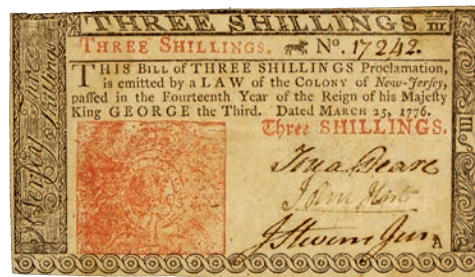 THREE SHILLINGS. III
THREE SHILLINGS. No. 17242.
THIS BILL of THREE SHILLINGS Proclamation,
is emitted by a LAW of the COLONY of New-Jersey,
passed in the Fourteenth Year of the Reign of his Majesty
King GEORGE the Third. Dated MARCH 25, 1776.
Three SHILLINGS.
John Hart
J Stevens Jun
A
Jersey
Three
Shillings